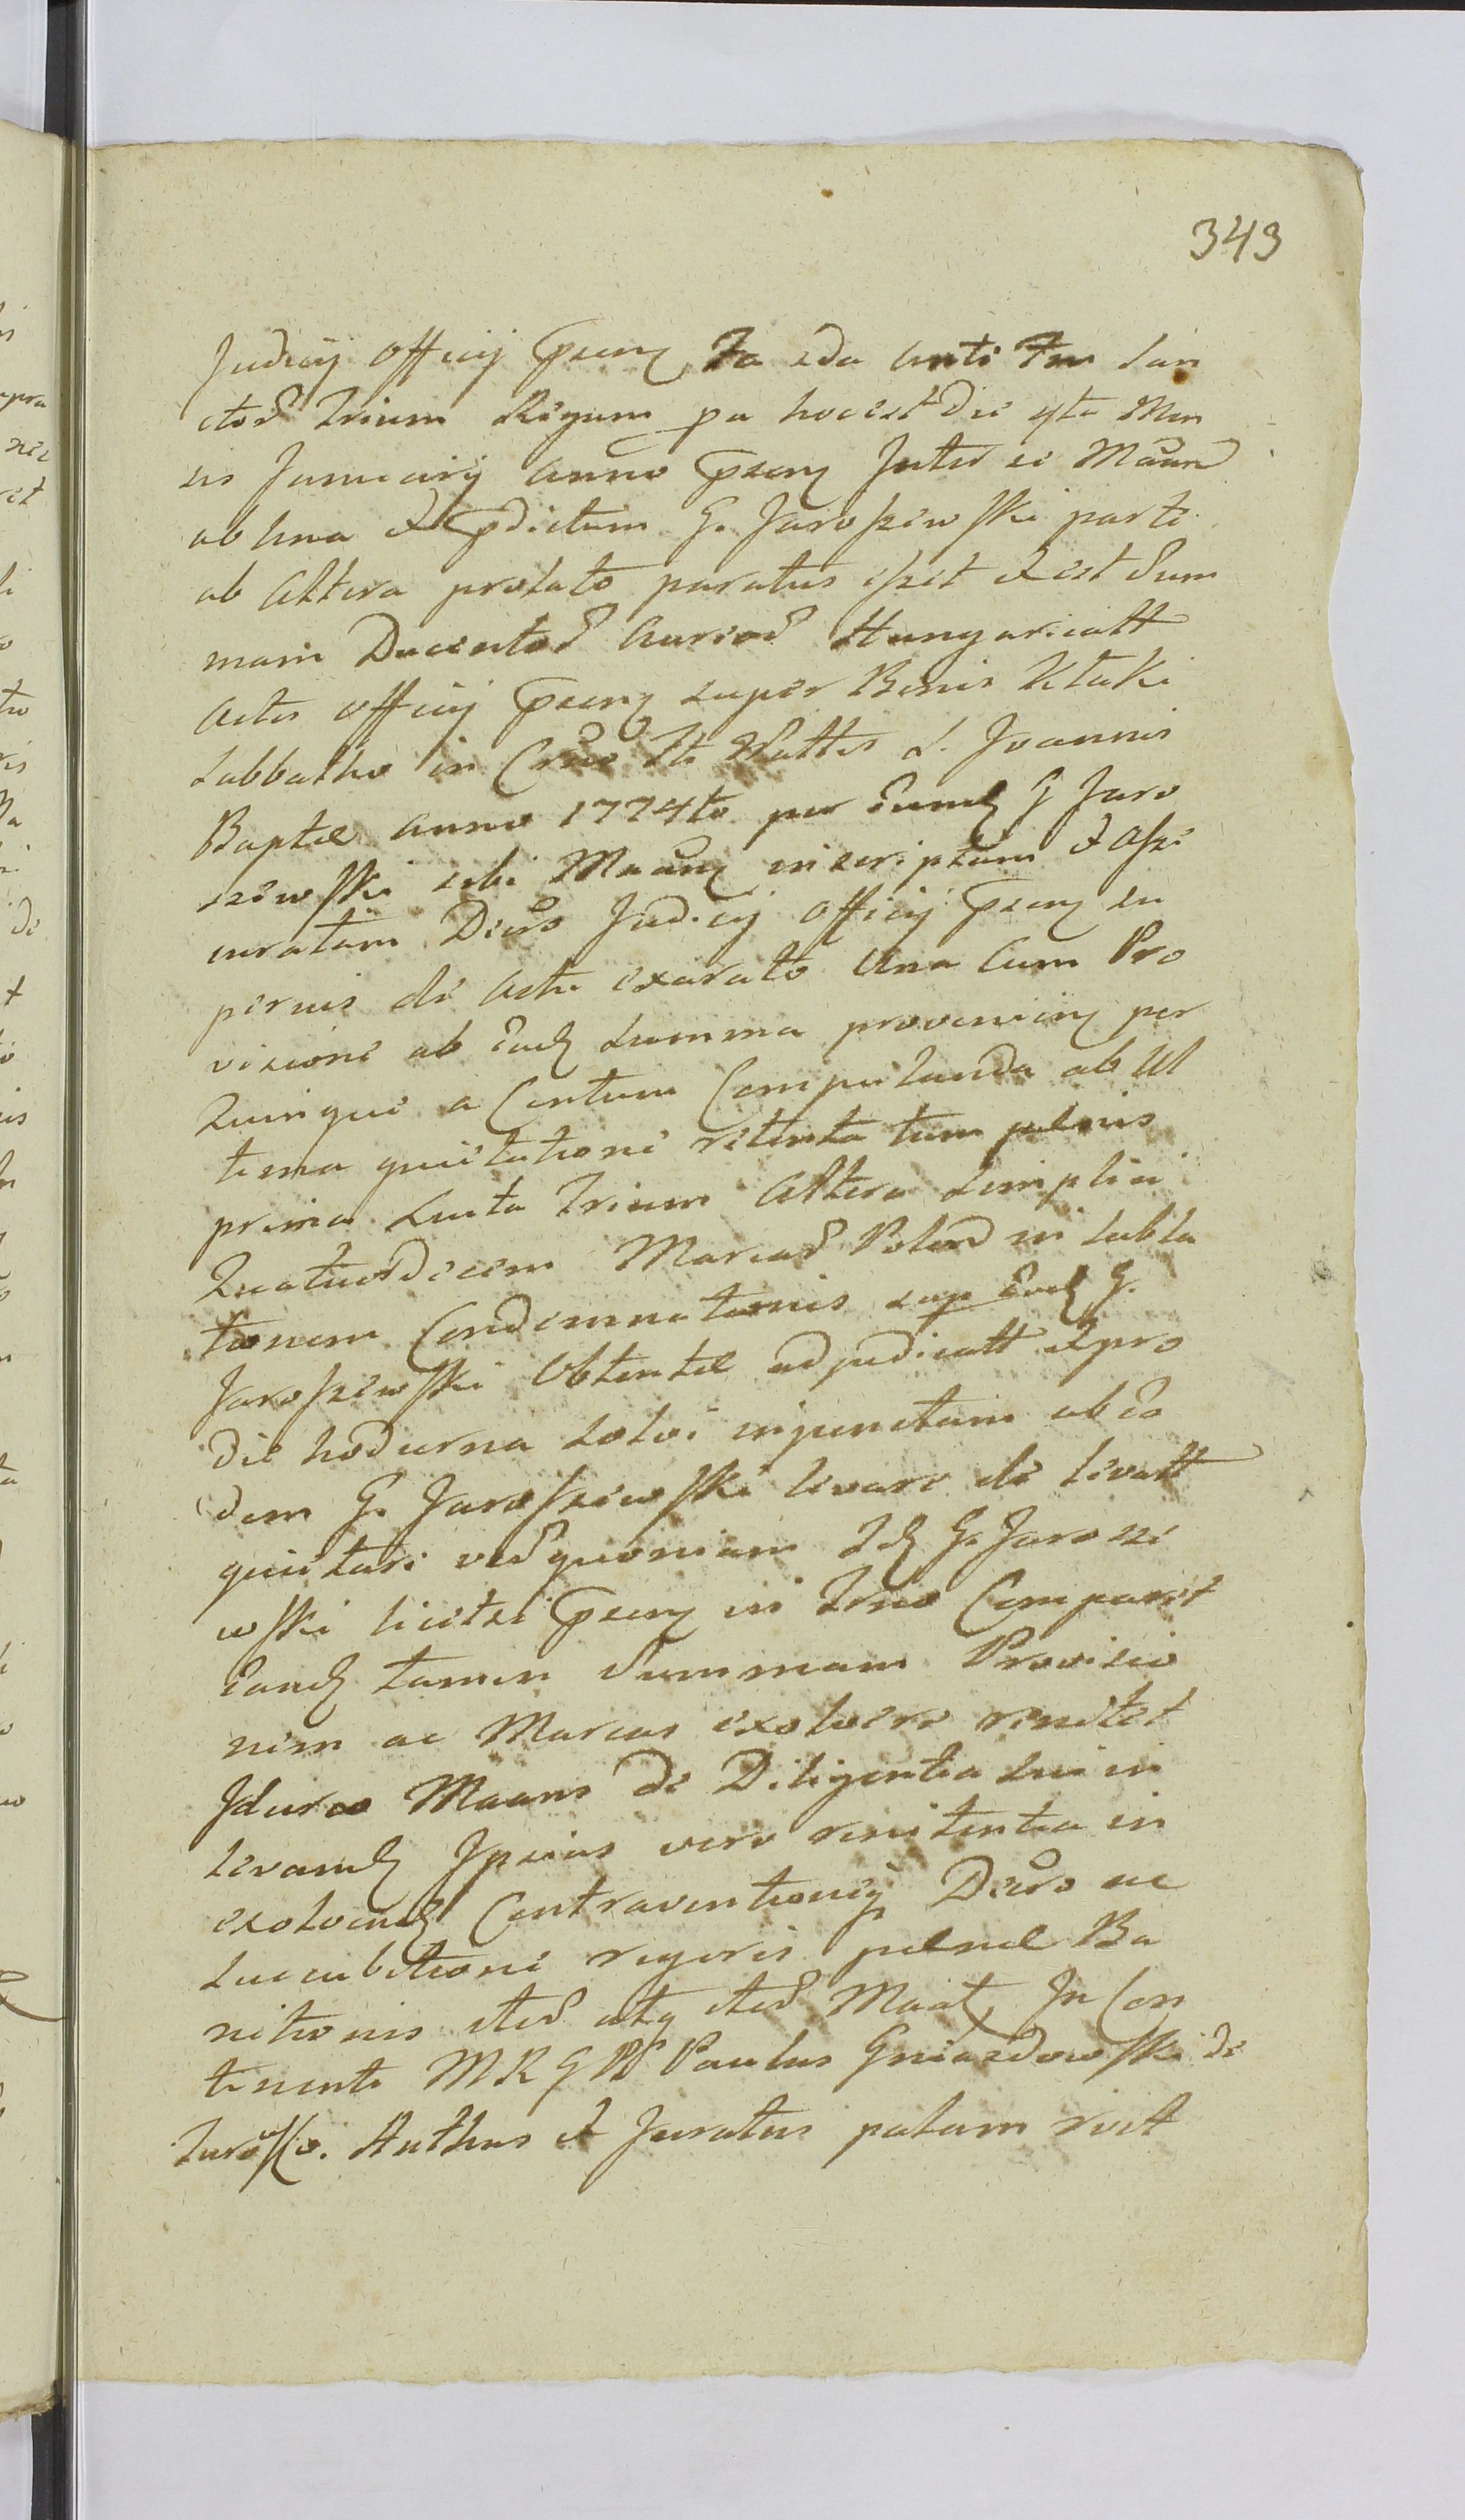 343
Judicij Officij praesenę Fa 2da anti Fm San
ctoꝝ Trium Regum pa hocest die 4ta Men
sis Januarij anno praesenę Inter se Maand
ab una et praedictum G. Jaroszewski parte
ab altera prolato paratus eszet et est Sum
mam Ducentoꝝ Aureoꝝ Hungaricall
Actis Officij praesenę super Bonis Ktaki
Sabbatho in Crno Fti Natttis S. Joannis
Baptae anno 1774to per Eumd G Jaro
szewski sibi Maanę inscriptam et Asse
curatam Decro Judicij Officij praesenę su
pervis de Actu exarato una cum Pro
visione ab Ead Summa provenienę per
Quinque a Centum Computanda ab Ul
tima quietatione retenta tum paenis
prima Luita Trium Altera Simplici
Quatuordecem Marcaꝝ Polond in subla
tionem Condemnationis sup Eod G.
Jaroszewski Obtentae adjudicatt et pro
die hodierna solvi injunctam ab Eo
dem G. Jaroszewski levare de levatt
quietare veꝝ quoniam Id G. Jarosze
wski licetsi praesenę in Trno Comparet
Eand tamen Summam Provisio
nem ac Marcas exolvere renitet
Idurco Maans de Diligentia sui in
levand Ipsius vero renitentia in
exolvend Contraventioneq Decro ac
succubitione rygoris paenae Ba
nitionis iteꝝ atq iteꝝ Maat, In Con
tinenti M R G D Paulus Gniazdowski de
Suroskie. Authus et Juratus palam reit